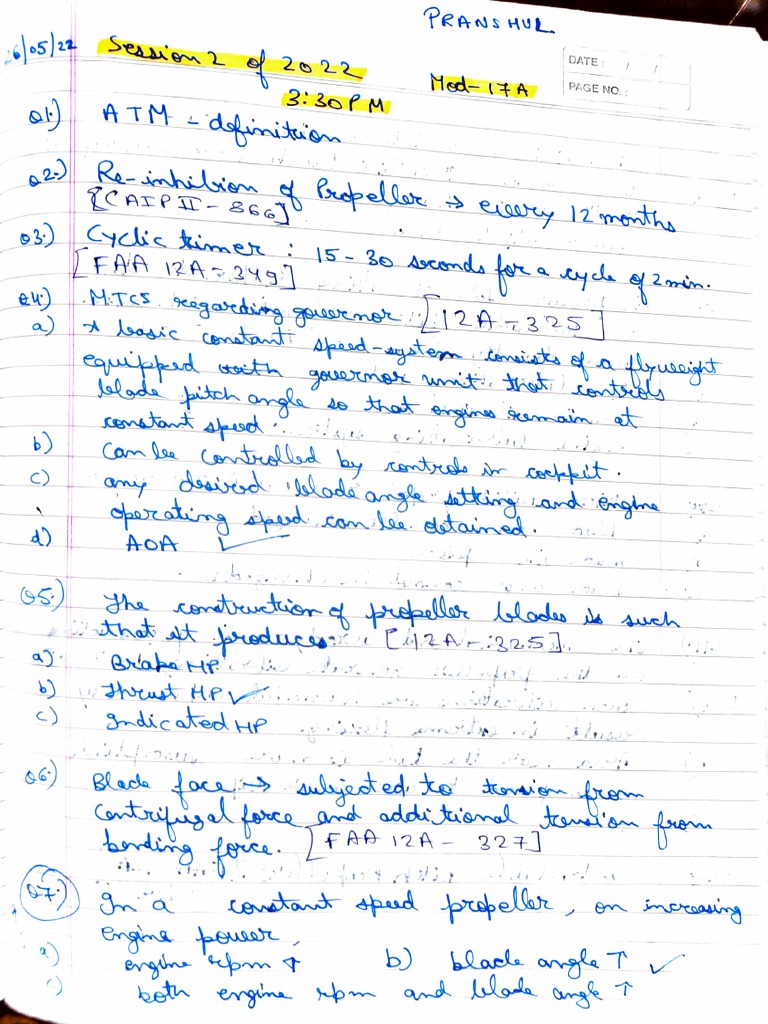 PRANSHUL
6/05/22 Session 2 of 2022
DATE: / /
Mod-17A
PAGE NO.:
3:30PM
Q1.) ATM - definition
Q2.) Re-inhibion of Propeller → every 12 months
[CAIP II - 366]
Q3.) Cyclic timer : 15-30 seconds for a cycle of 2 min.
[FAA 12A - 349]
Q4.) MTCS regarding governor [12A - 325]
a) A basic constant speed-system consists of a flyweight
equipped with governor unit that controls
blade pitch angle so that engines remain at
constant speed.
b) Can be controlled by controls in cockpit.
c) any desired blade angle setting and engine
operating speed can be obtained.
d) AOA ✓
Q5.) The construction of propeller blades is such
that it produces [12A - 325]
a) Brake HP
b) Thrust HP ✓
c) Indicated HP
Q6) Blade face → subjected to tension from
Centrifugal force and additional tension from
bending force. [FAA 12A - 327]
Q7.) In a constant speed propeller, on increasing
engine power,
a) engine rpm ↑ b) blade angle ↑ ✓
c) both engine rpm and blade angle ↑